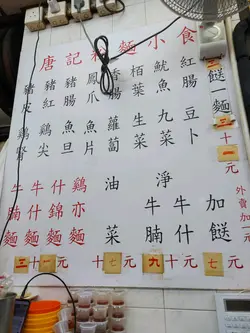 唐記粉麵小食
豬皮
豬紅
豬腸
鳳爪
香腸
栢葉
魷魚
紅腸
雞腎
雞尖
魚旦
魚片
蘿蔔
生菜
九菜
豆卜
餸一
三十一元
牛腩麵
牛什麵
什錦麵
雞亦麵
三十一元
油菜
十七元
淨牛腩
牛什
九十元
加餸
十七元
外賣加
元